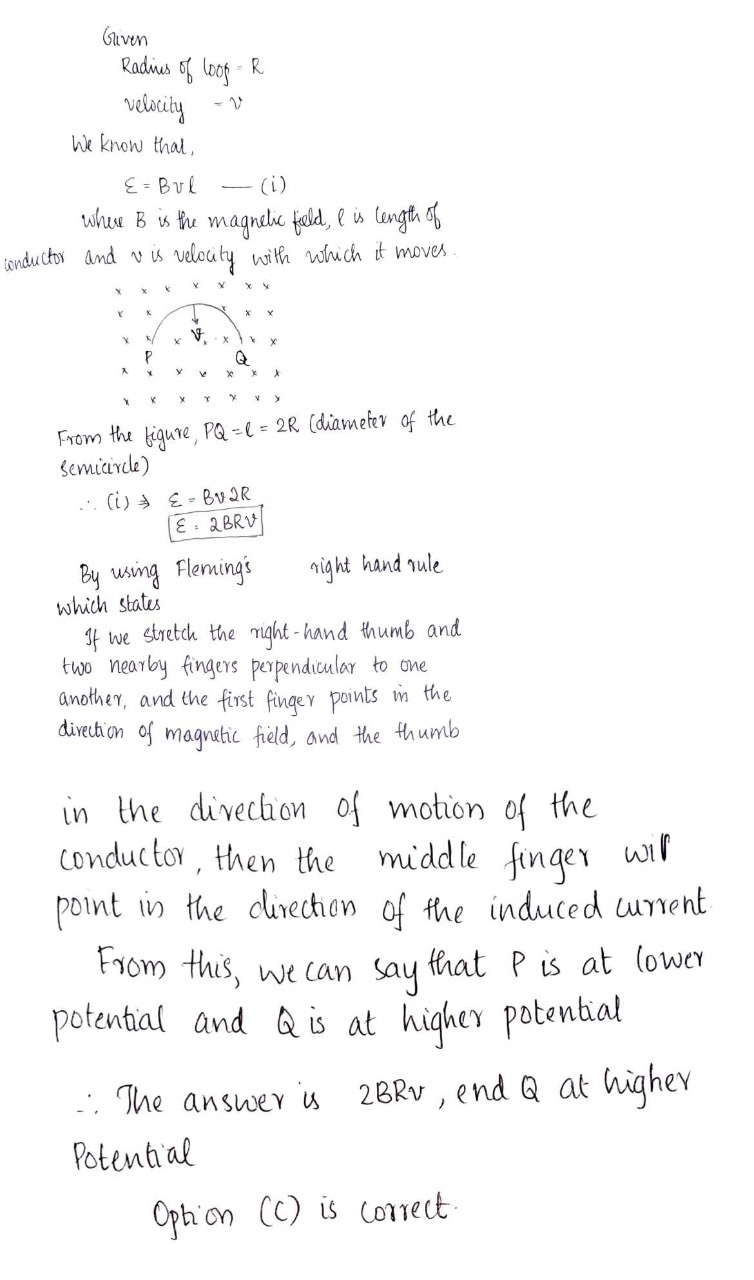 Given
Radius of loop = R
velocity = v
We know that,
ε = Bvl — (i)
where B is the magnetic field, l is length of
conductor and v is velocity with which it moves.
x x x x x x x
x x x x x
x x x v x x x
P Q
x x x x x x x
x x x x x x x
From the figure, PQ = l = 2R (diameter of the
semicircle)
∴ (i) ⇒ ε = Bv2R
ε = 2BRV
By using Fleming's right hand rule
which states
If we stretch the right-hand thumb and
two nearby fingers perpendicular to one
another, and the first finger points in the
direction of magnetic field, and the thumb
in the direction of motion of the
conductor, then the middle finger will
point in the direction of the induced current.
From this, we can say that P is at lower
potential and Q is at higher potential
∴ The answer is 2BRv, end Q at higher
Potential
Option (C) is correct.